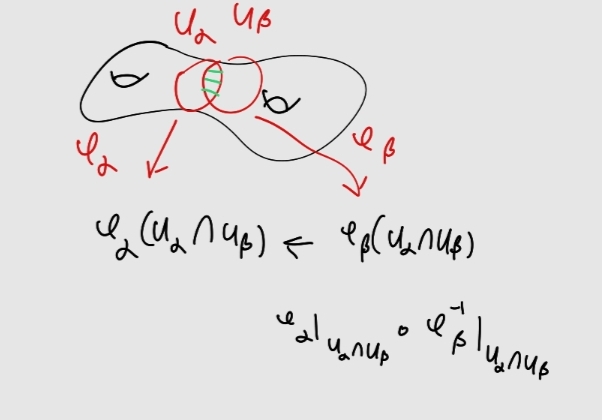 U_α U_β
φ_α φ_β
φ_α(U_α ∩ U_β) ← φ_β(U_α ∩ U_β)
φ_α|_{U_α∩U_β} ∘ φ_β^{-1}|_{U_α∩U_β}